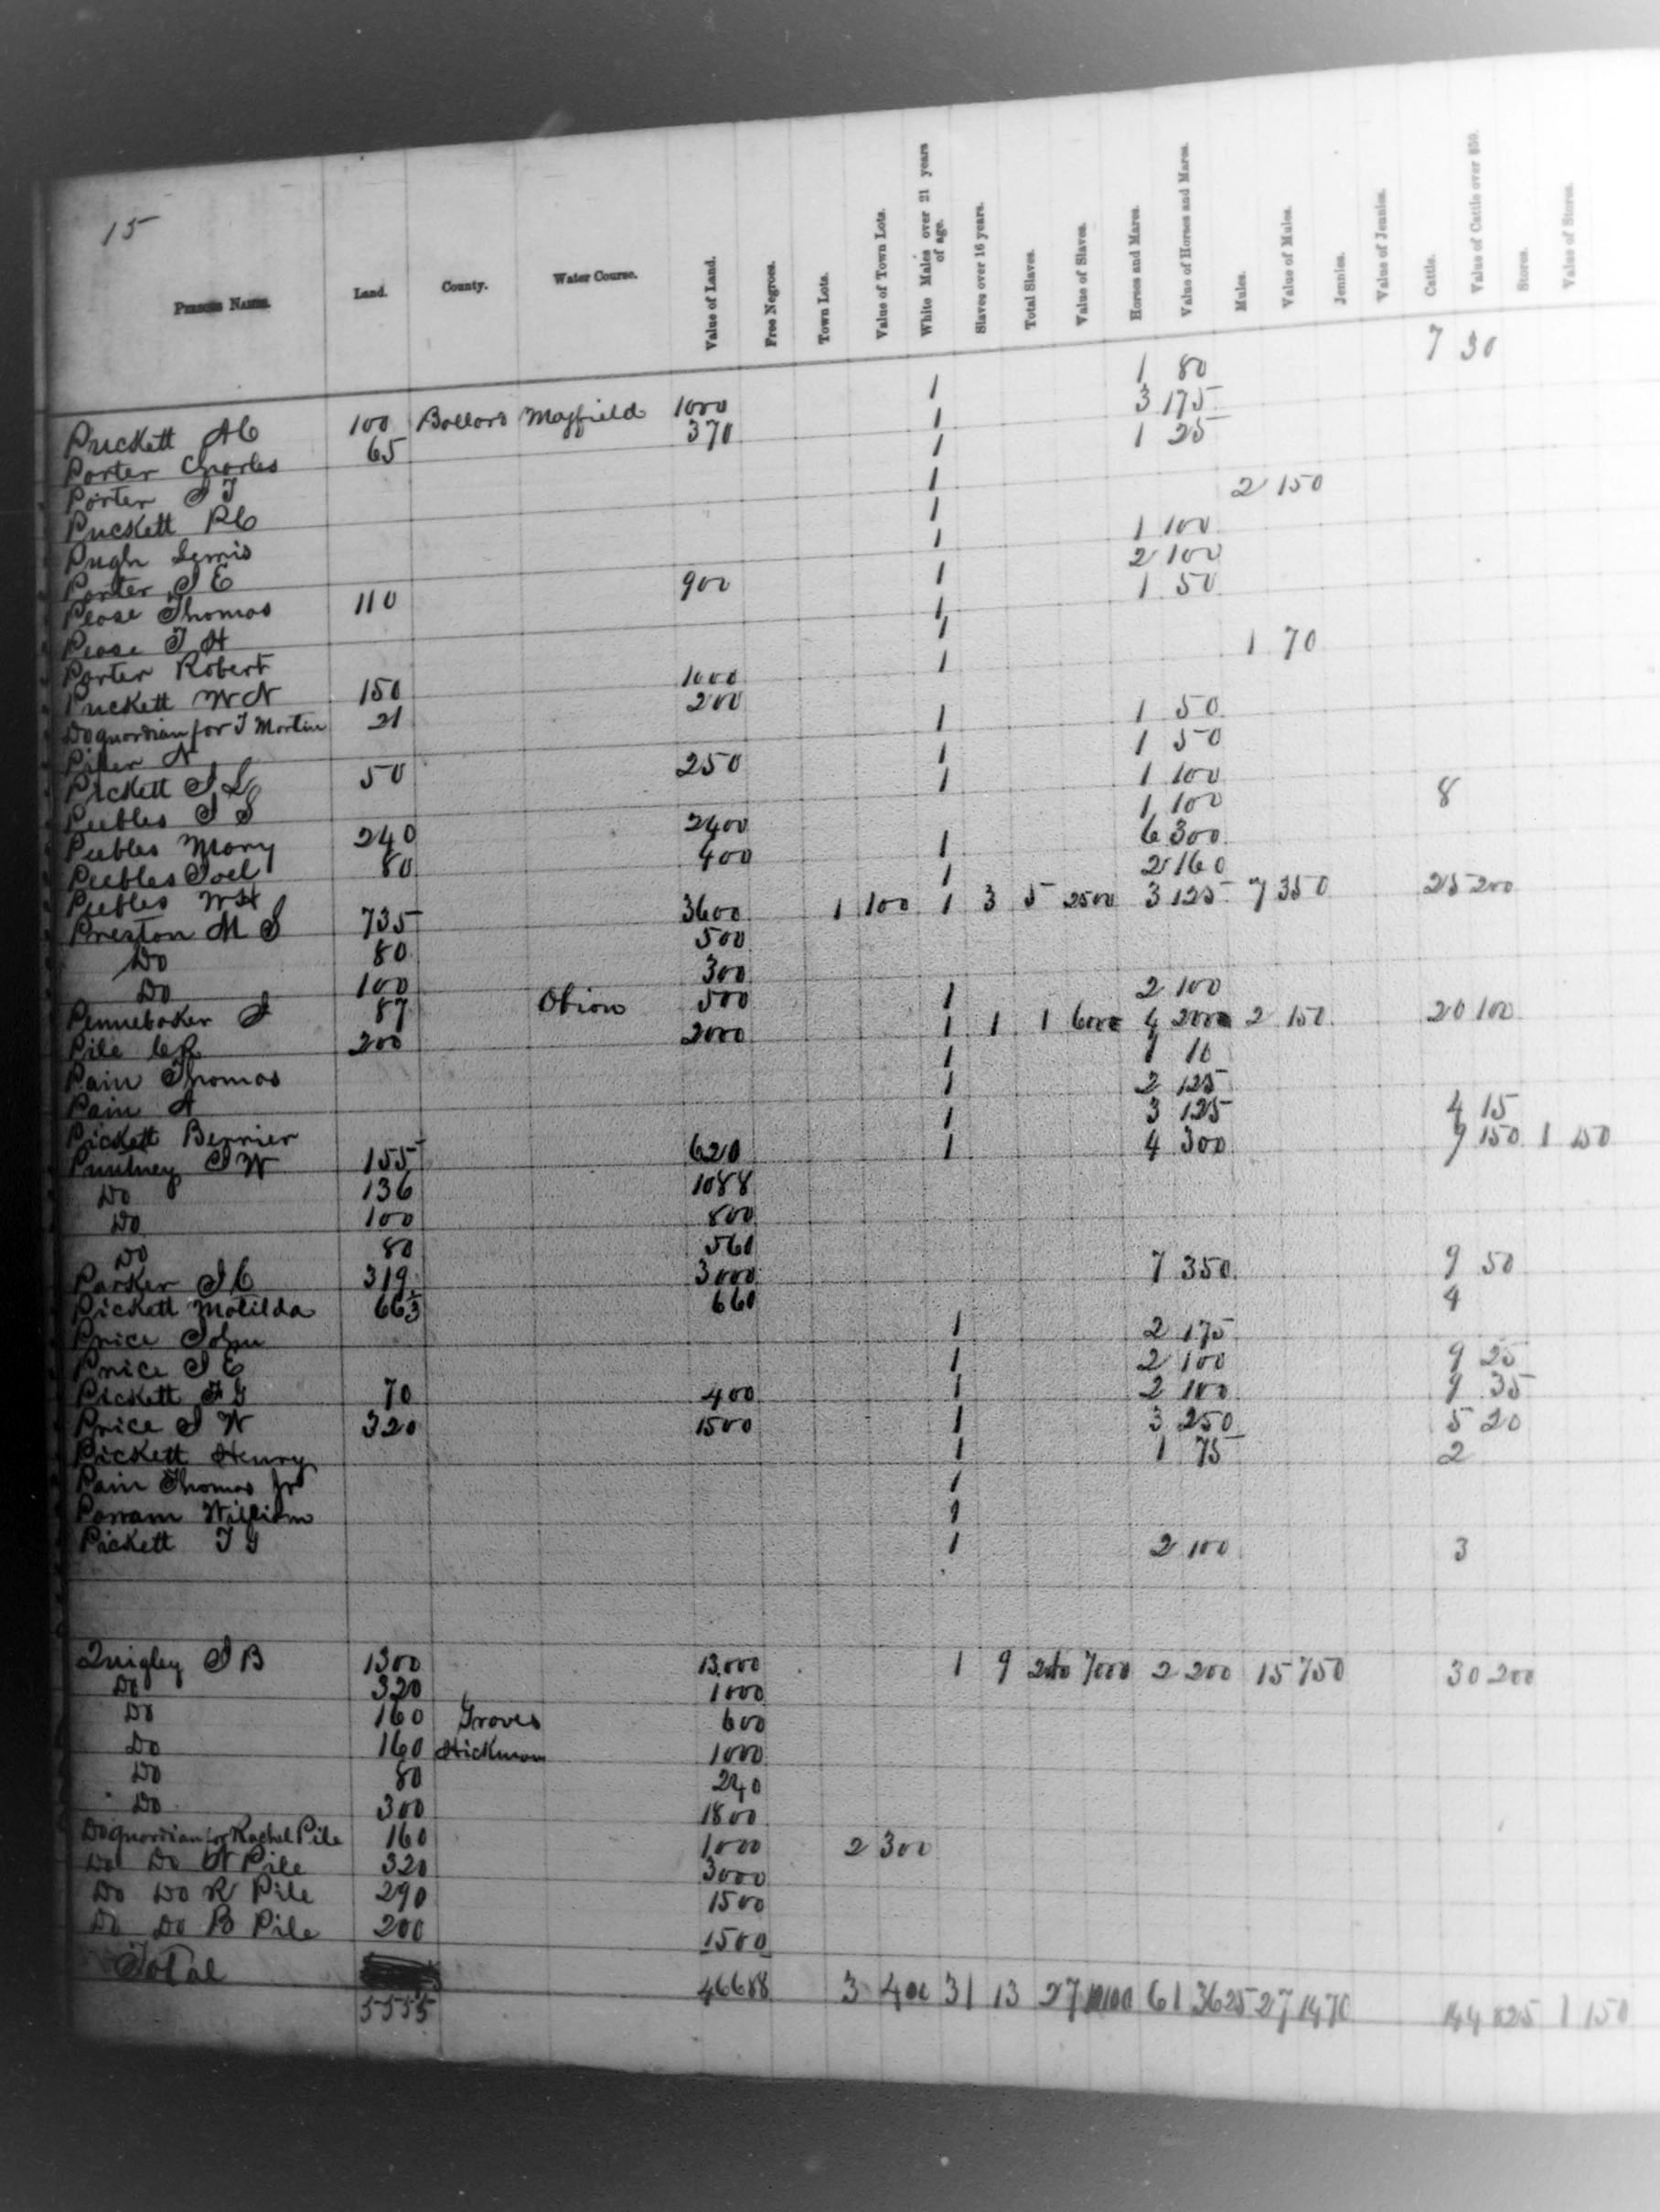 15
Persons Names. Land. County. Water Course. Value of Land. Free Negroes. Town Lots. Value of Town Lots. White Males over 21 years of age. Slaves over 16 years. Total Slaves. Value of Slaves. Horses and Mares. Value of Horses and Mares. Mules. Value of Mules. Jennies. Value of Jennies. Cattle. Value of Cattle over $50. Stores. Value of Stores.
Puckett AC 100 Ballard Mayfield 1000 1 1 80 7 30
Porter Charles 65 370 1 3 175
Porter J T 1 1 25
Puckett RC 1
Pugh Lewis 1 2 150
Porter J E 1 1 100
Pease Thomas 110 900 1 2 100
Pease T H 1 1 50
Porter Robert 1
Puckett W N 150 1000 1 1 70
Do guardian for J Martin 21 200
Piler N 1 1 50
Pickett J L 50 250 1 1 50
Peebles J S 1 1 100
Peebles Mary 240 2400 1 100 8
Peebles Joel 80 400 1 6 300
Peebles W H 1 2 160
Preston M S 735 3600 1 100 1 3 5 2500 3 125 7 350 25 200
Do 80 500
Do 100 300
Pennebaker J 87 Obion 500 1 2 100
Pile C R 200 2000 1 1 1 600 4 200 2 150 20 100
Pain Thomas 1 1 10
Pain A 1 2 125
Pickett Berrier 1 3 125 4 15
Puntney J W 155 620 1 4 300 7 150 1 150
Do 136 1088
Do 100 800
Do 80 560
Parker J C 319 3000 7 350 9 50
Pickett Matilda 66⅓ 660 4
Price John 1 2 175
Price J E 1 2 100 9 25
Pickett F G 70 400 1 2 100 7 35
Price J W 320 1500 1 3 250 5 20
Pickett Henry 1 1 75 2
Pain Thomas Jr 1
Parram William 1
Pickett T G 1 2 100 3
Quigley J B 1300 13.000 1 9 7000 2 200 15 750 30 200
Do 320 1000
Do 160 Graves 600
Do 160 Hickman 1000
Do 80 240
Do 300 1800
Do guardian for Rachel Pile 160 1000 2 300
Do Do N Pile 320 3000
Do Do R Pile 290 1500
Do Do B Pile 200 1500
Total 5555 46688 3 400 31 13 27 10100 61 3625 27 1470 144 825 1 150